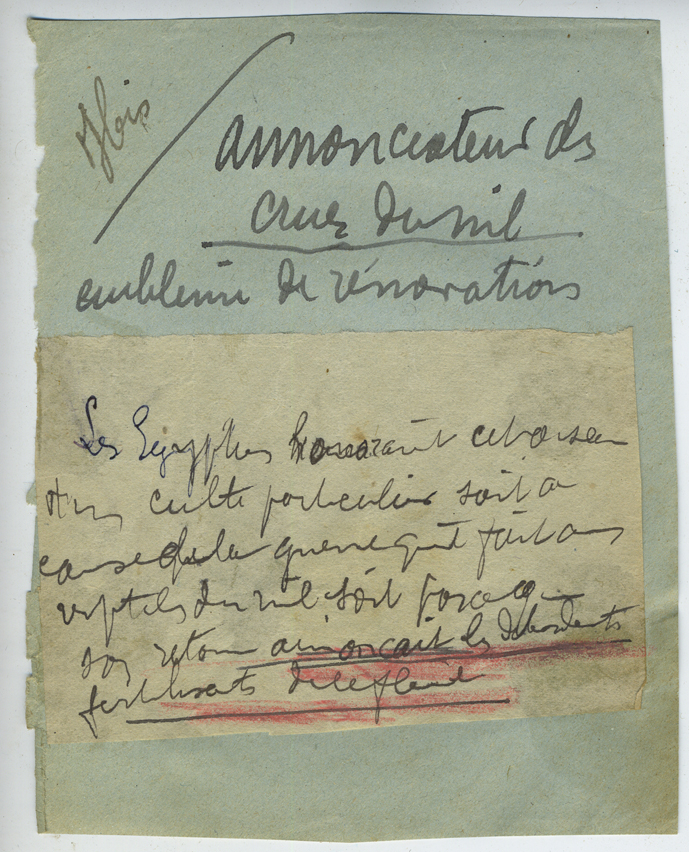 annonciateur des
crues du nil
emblème de rénovations
Les Egyptiens honoraient cet oiseau
d'un culte particulier soit à
cause de la guerre qu'il fait aux
reptiles du nil soit parce que
son retour annonçait les débordements
fertilisants de ce fleuve